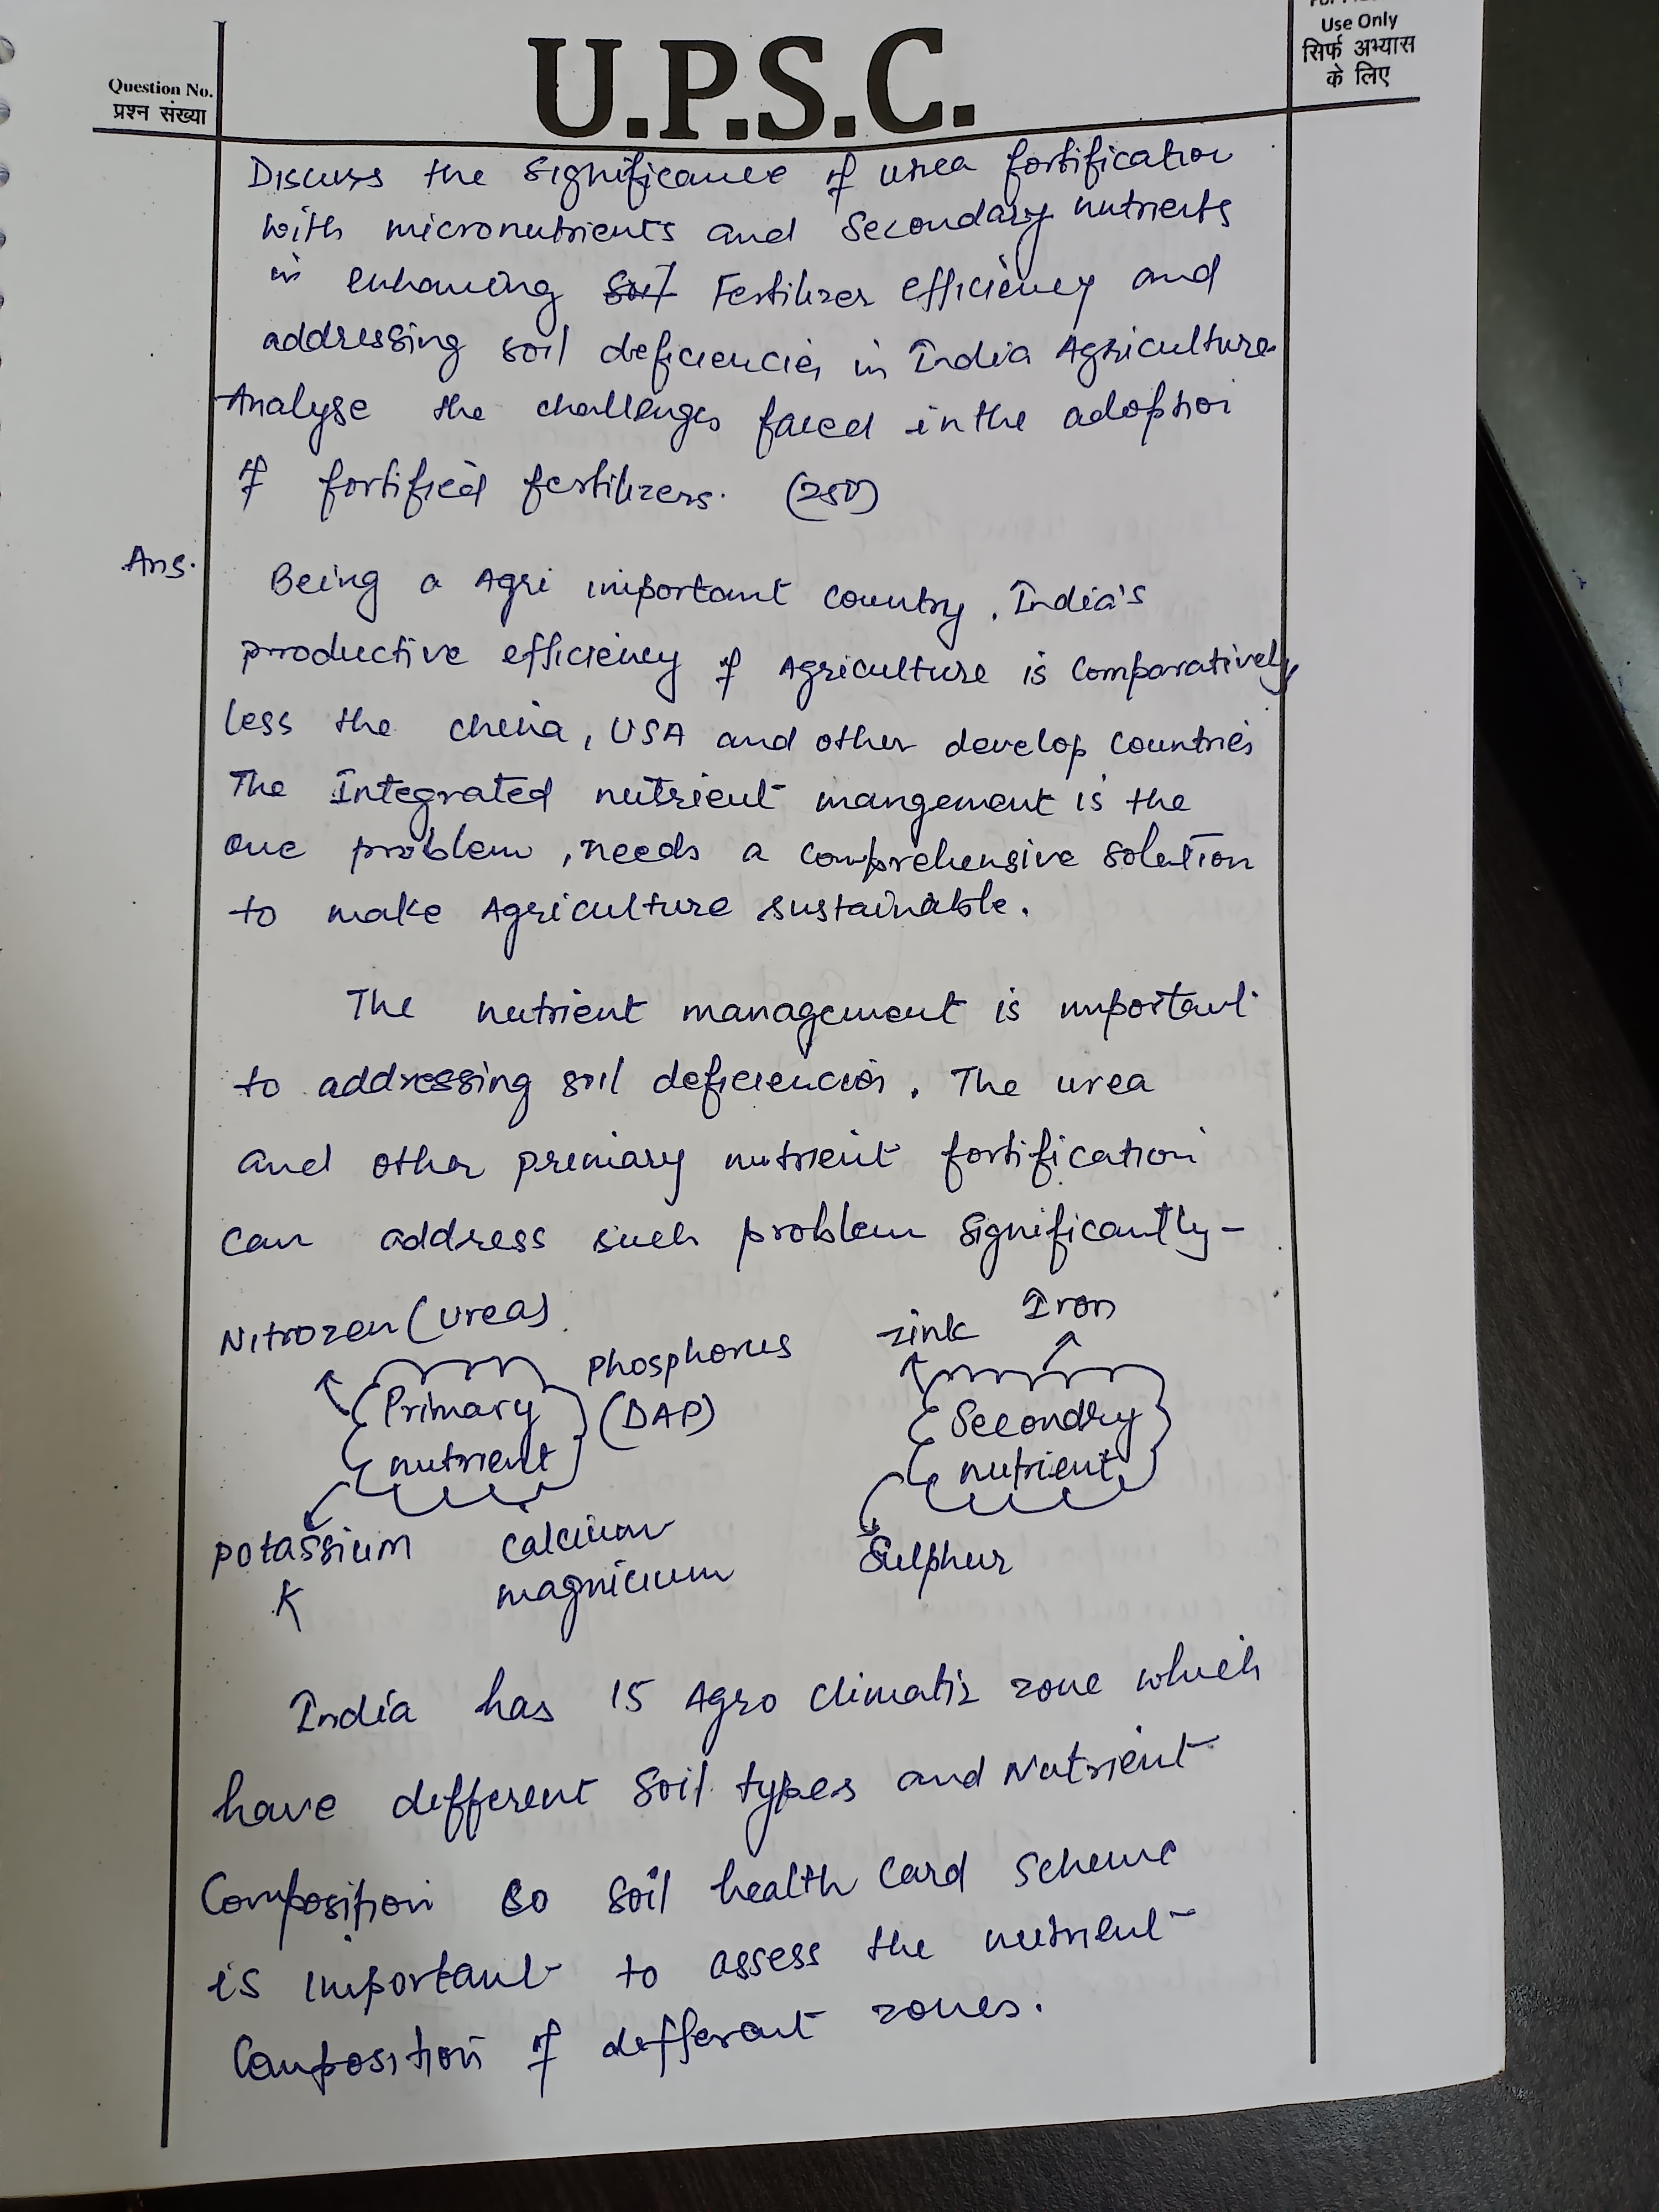 Use Only
सिर्फ अभ्यास
के लिए
Question No.
प्रश्न संख्या
U.P.S.C.
Discuss the significance of urea fortification
with micronutrients and Secondary nutrients
in enhancing Soil Fertilizer efficiency and
addressing soil deficiencies in India Agriculture.
Analyse the challenges faced in the adoption
of fortified fertilizers. (250)
Ans.
Being a Agri important country, India's
productive efficiency of Agriculture is comparatively
less the china, USA and other develop countries
The Integrated nutrient mangement is the
one problem, needs a comprehensive solution
to make Agriculture sustainable.
The nutrient management is important
to addressing soil deficiencies. The urea
and other primary nutrient fortification
can address such problem significantly-
Nitrozen (Urea) Phosphorus zink Iron
Primary (DAP) Secondry
nutrient nutrient
potassium calcium Sulphur
K magnicium
India has 15 Agro climatic zone which
have different soil types and Nutrient
Composition so soil health card scheme
is important to assess the nutrient
Composition of different zones.